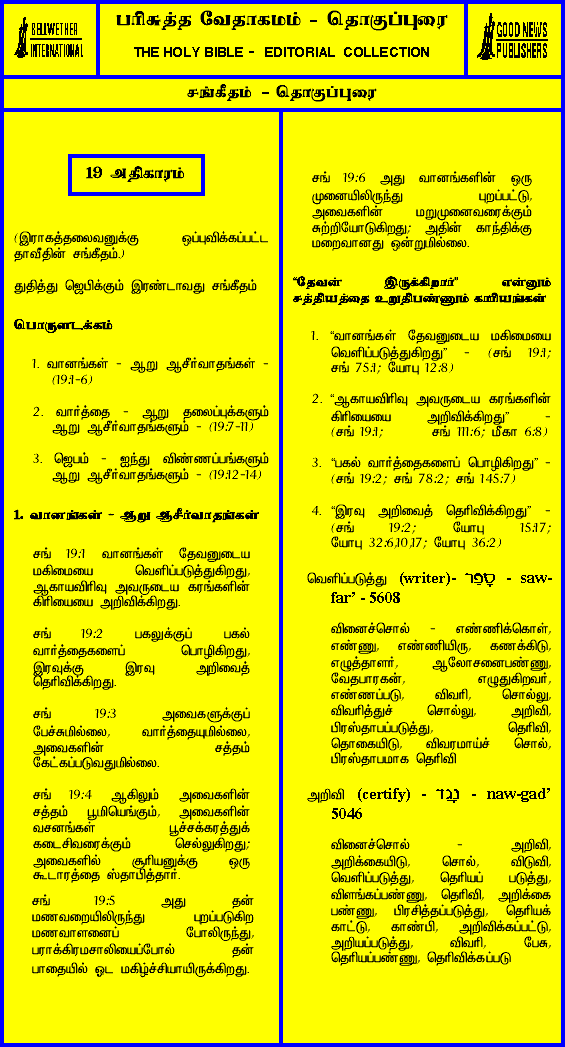 BELLWETHER
INTERNATIONAL
பரிசுத்த வேதாகமம் - தொகுப்புரை
THE HOLY BIBLE - EDITORIAL COLLECTION
GOOD NEWS
PUBLISHERS
சங்கீதம் - தொகுப்புரை
19 அதிகாரம்
(இராகத்தலைவனுக்கு ஒப்புவிக்கப்பட்ட
தாவீதின் சங்கீதம்.)
துதித்து ஜெபிக்கும் இரண்டாவது சங்கீதம்
பொருளடக்கம்
1. வானங்கள் - ஆறு ஆசீர்வாதங்கள் -
(19:1-6)
2. வார்த்தை - ஆறு தலைப்புக்களும்
ஆறு ஆசீர்வாதங்களும் - (19:7-11)
3. ஜெபம் - ஐந்து விண்ணப்பங்களும்
ஆறு ஆசீர்வாதங்களும் - (19:12-14)
1. வானங்கள் - ஆறு ஆசீர்வாதங்கள்
சங் 19:1 வானங்கள் தேவனுடைய
மகிமையை வெளிப்படுத்துகிறது,
ஆகாயவிரிவு அவருடைய கரங்களின்
கிரியையை அறிவிக்கிறது.
சங் 19:2 பகலுக்குப் பகல்
வார்த்தைகளைப் பொழிகிறது,
இரவுக்கு இரவு அறிவைத்
தெரிவிக்கிறது.
சங் 19:3 அவைகளுக்குப்
பேச்சுமில்லை, வார்த்தையுமில்லை,
அவைகளின் சத்தம்
கேட்கப்படுவதுமில்லை.
சங் 19:4 ஆகிலும் அவைகளின்
சத்தம் பூமியெங்கும், அவைகளின்
வசனங்கள் பூச்சக்கரத்துக்
கடைசிவரைக்கும் செல்லுகிறது;
அவைகளில் சூரியனுக்கு ஒரு
கூடாரத்தை ஸ்தாபித்தார்.
சங் 19:5 அது தன்
மணவறையிலிருந்து புறப்படுகிற
மணவாளனைப் போலிருந்து,
பராக்கிரமசாலியைப்போல் தன்
பாதையில் ஓட மகிழ்ச்சியாயிருக்கிறது.
சங் 19:6 அது வானங்களின் ஒரு
முனையிலிருந்து புறப்பட்டு,
அவைகளின் மறுமுனைவரைக்கும்
சுற்றியோடுகிறது; அதின் காந்திக்கு
மறைவானது ஒன்றுமில்லை.
"தேவன் இருக்கிறார்" என்னும்
சத்தியத்தை உறுதிபண்ணும் காரியங்கள்
1. "வானங்கள் தேவனுடைய மகிமையை
வெளிப்படுத்துகிறது" - (சங் 19:1;
சங் 75:1; யோபு 12:8)
2. "ஆகாயவிரிவு அவருடைய கரங்களின்
கிரியையை அறிவிக்கிறது" -
(சங் 19:1; சங் 111:6; மீகா 6:8)
3. "பகல் வார்த்தைகளைப் பொழிகிறது" -
(சங் 19:2; சங் 78:2; சங் 145:7)
4. "இரவு அறிவைத் தெரிவிக்கிறது" -
(சங் 19:2; யோபு 15:17;
யோபு 32:6,10,17; யோபு 36:2)
வெளிப்படுத்து (writer)- סָפַר - saw-
far' - 5608
வினைச்சொல் - எண்ணிக்கொள்,
எண்ணு, எண்ணியிரு, கணக்கிடு,
எழுத்தாளர், ஆலோசனைபண்ணு,
வேதபாரகன், எழுதுகிறவர்,
எண்ணப்படு, விவரி, சொல்லு,
விவரித்துச் சொல்லு, அறிவி,
பிரஸ்தாபப்படுத்து, தெரிவி,
தொகையிடு, விவரமாய்ச் சொல்,
பிரஸ்தாபமாக தெரிவி
அறிவி (certify) - נָגַד - naw-gad'
5046
வினைச்சொல் - அறிவி,
அறிக்கையிடு, சொல், விடுவி,
வெளிப்படுத்து, தெரியப் படுத்து,
விளங்கப்பண்ணு, தெரிவி, அறிக்கை
பண்ணு, பிரசித்தப்படுத்து, தெரியக்
காட்டு, காண்பி, அறிவிக்கப்பட்டு,
அறியப்படுத்து, விவரி, பேசு,
தெரியப்பண்ணு, தெரிவிக்கப்படு